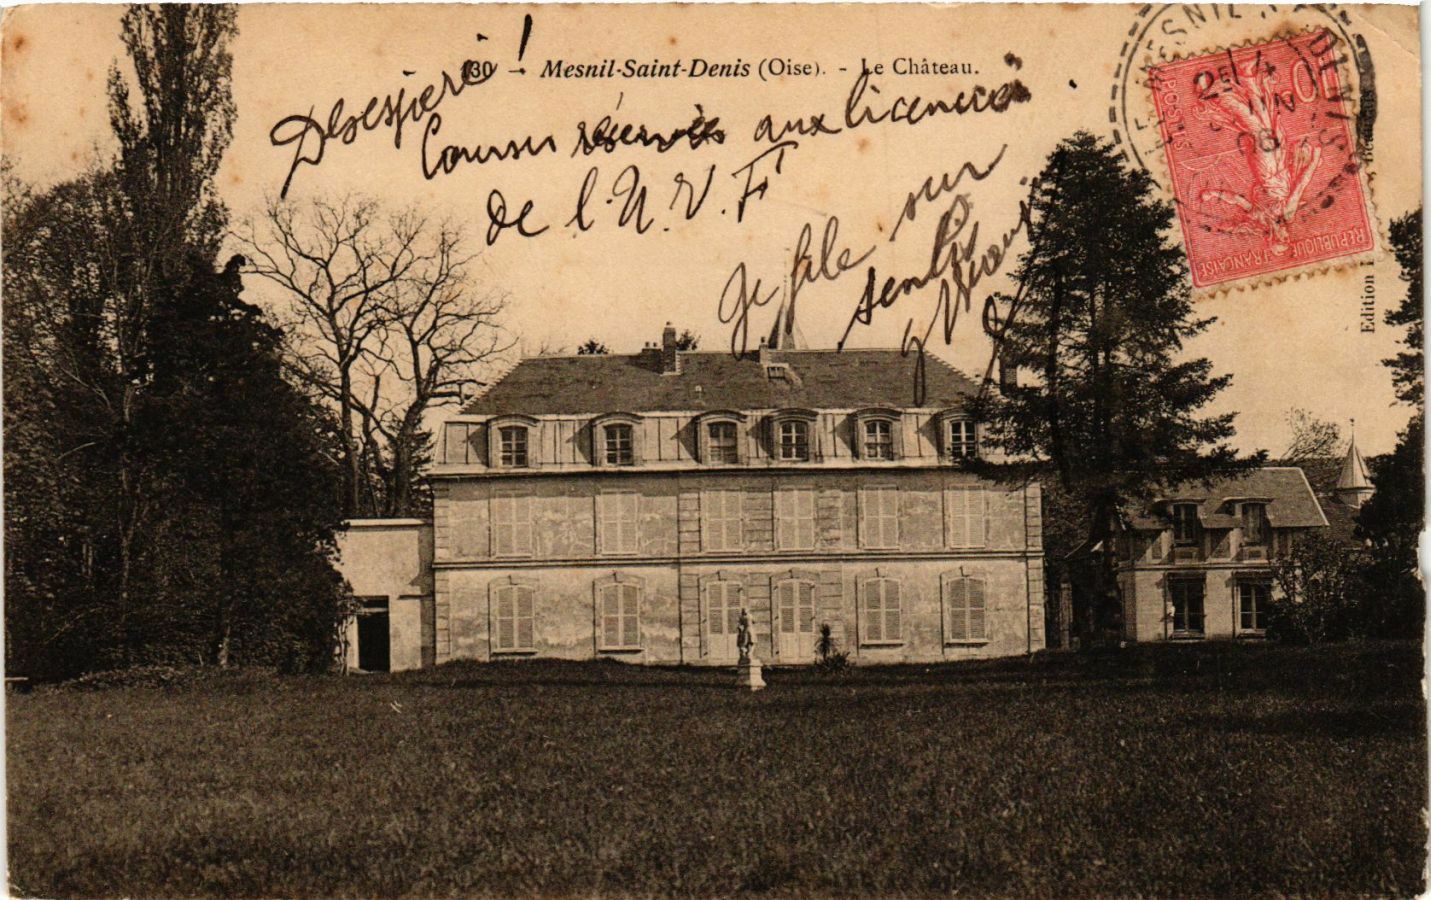 130 - Mesnil-Saint-Denis (Oise). - Le Château.
Desespéré!
Courses réservées aux licenciés.
de l'U.V.F
Je file sur
senlis
MESNIL DENIS
2E 4
JUIN
06
10
POSTES
REPUBLIQUE FRANÇAISE
Edition